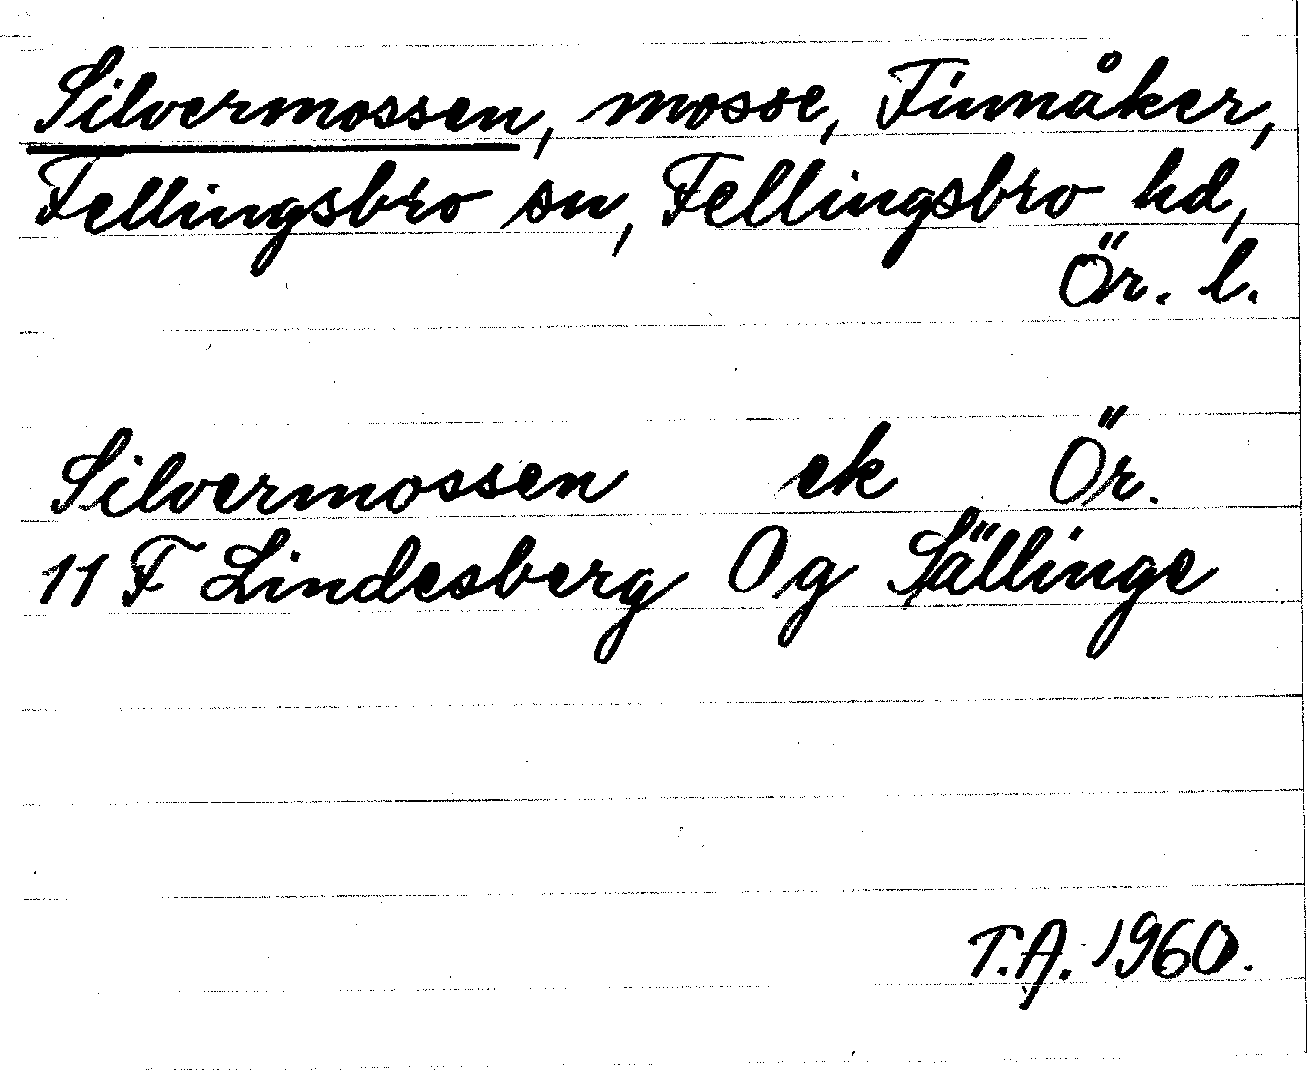 Silvermossen, mosse, Finnåker,
Fellingsbro sn, Fellingsbro hd,
Ör. l.
Silvermossen ek Ör.
11 F Lindesberg Og Sällinge
T.A. 1960.